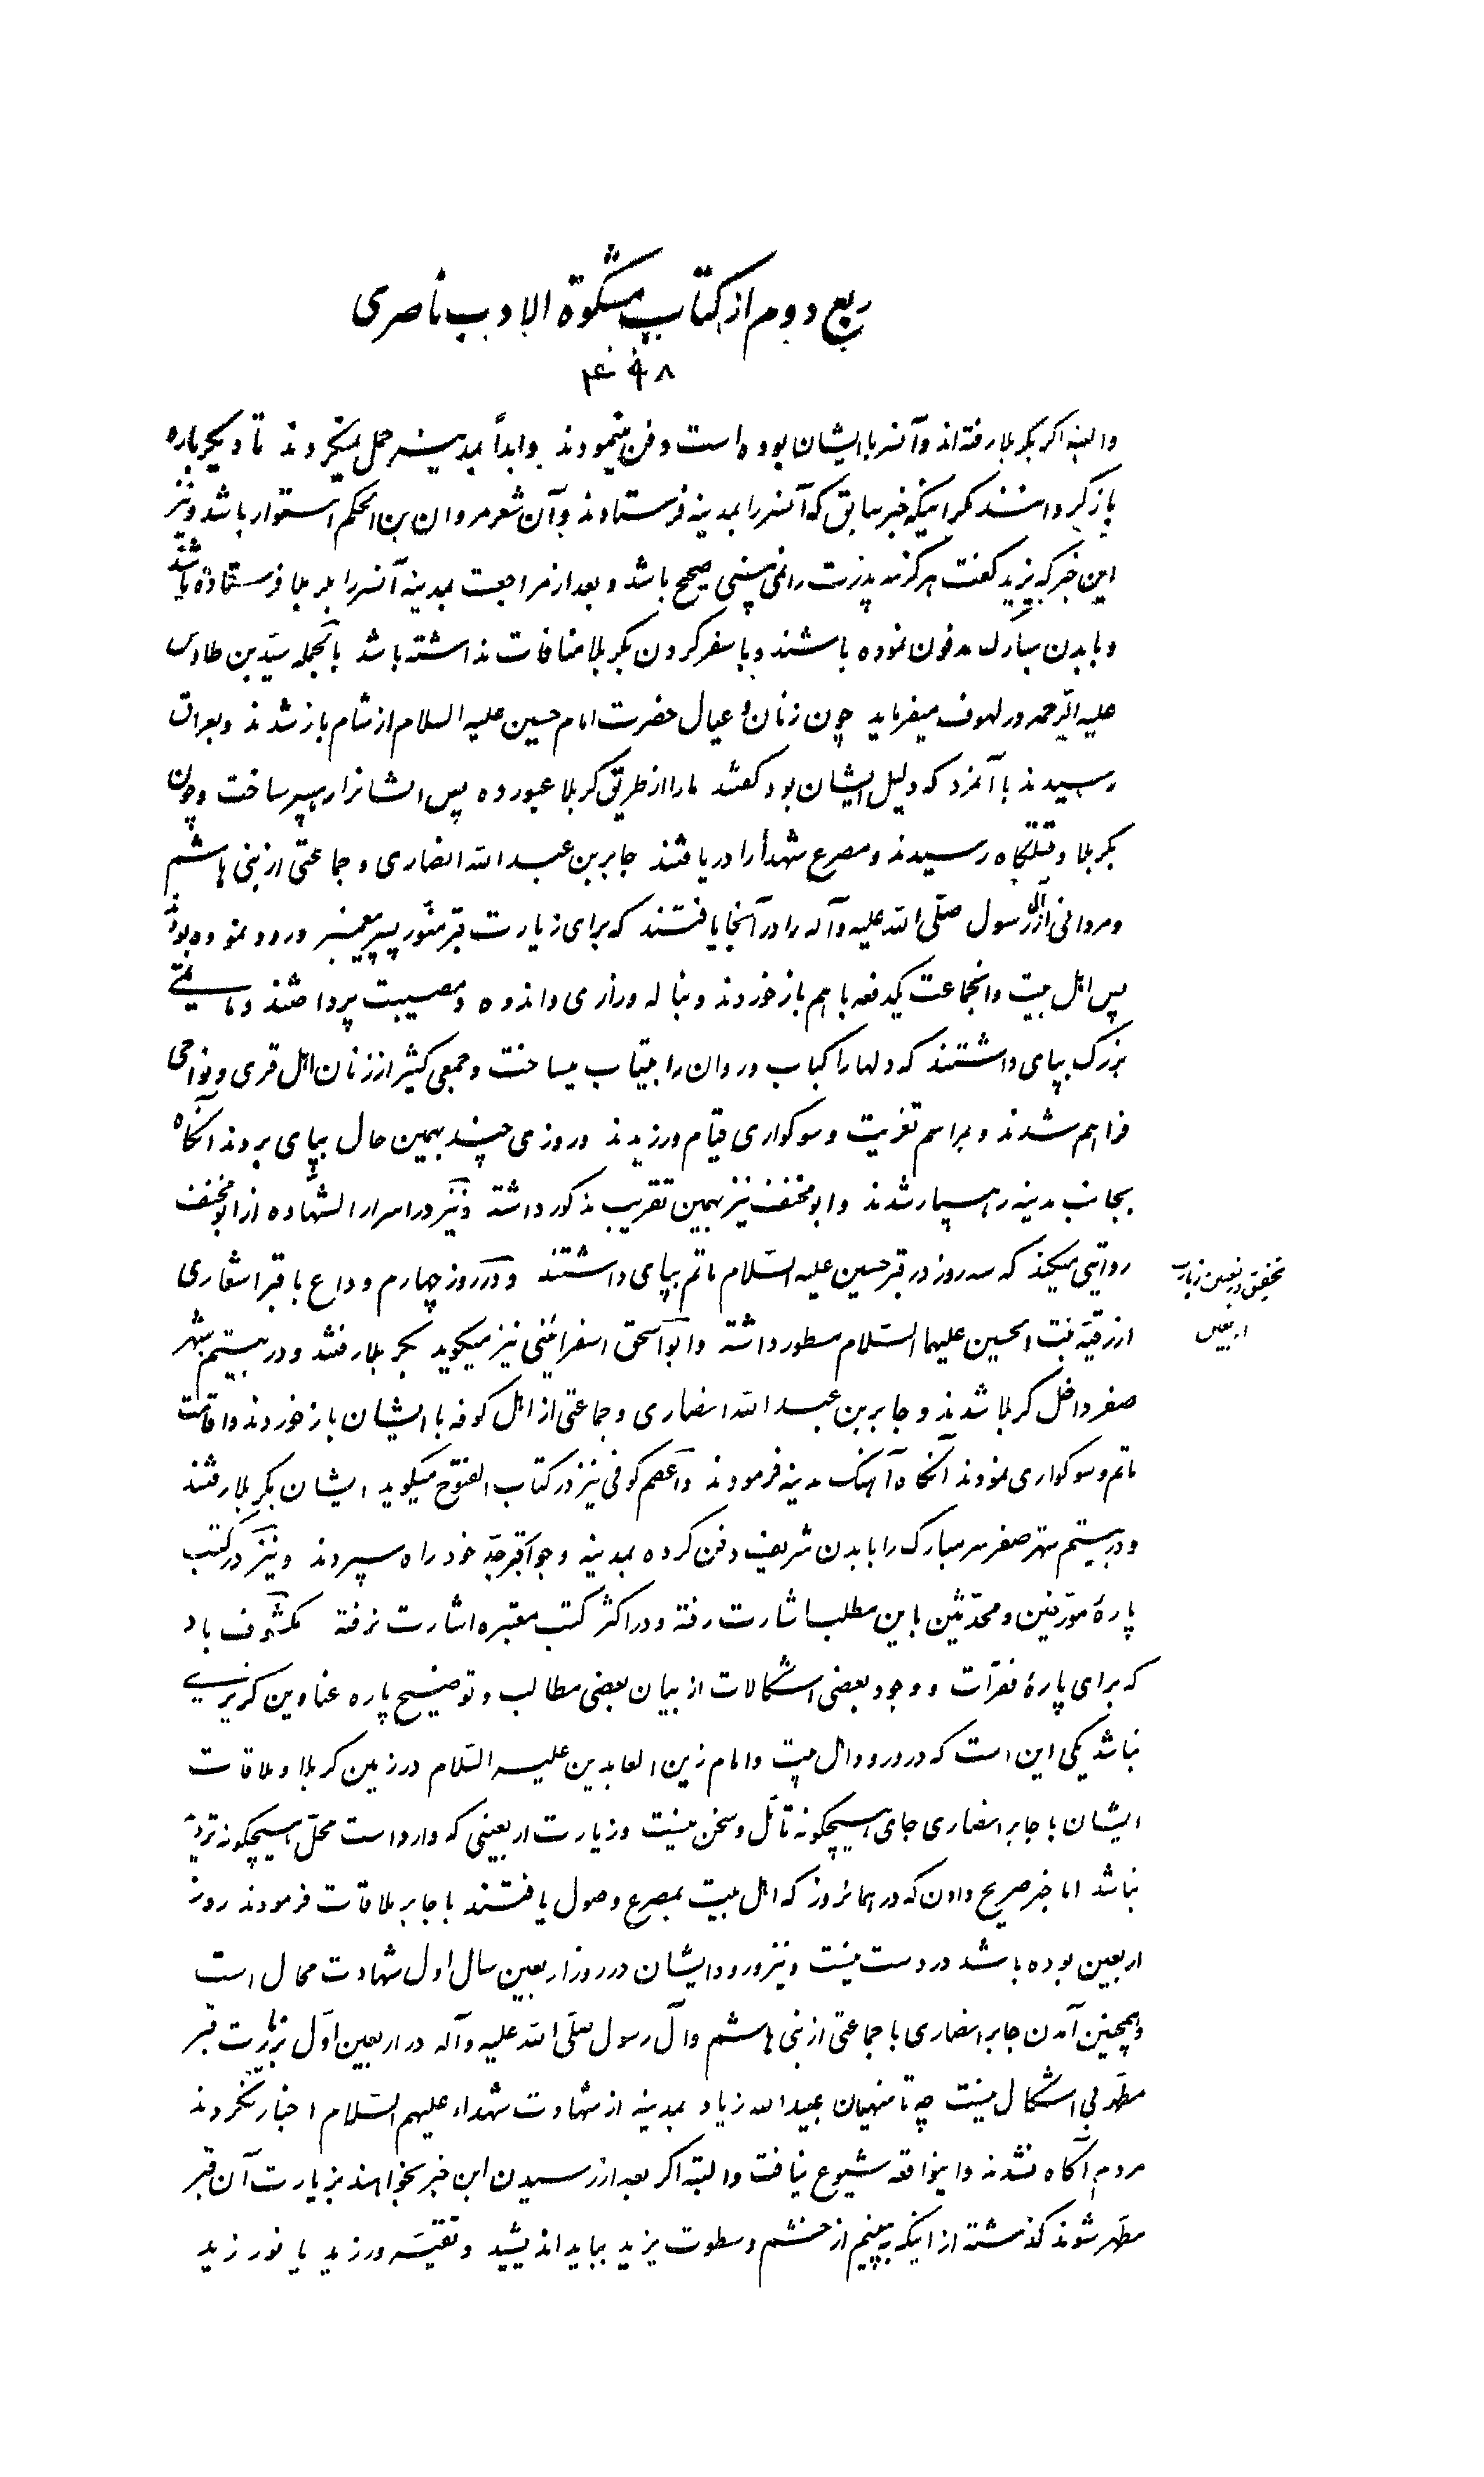 ربع دوم از کتاب مشکوة الادب ناصری
۴۹۸
والبته اگر بکربلا رفته‌اند و آنسر با ایشان بوده است دفن مینمودند و ابداً بمدینه حمل نمیکردند تا دیگر باره
باز گردانند مگر اینکه خبر سابق که آنسر را بمدینه فرستادند و آن شعر مروان بن الحکم استوار باشد و نیز
این خبر که یزید گفت هرگز سر پدرت را نمی بینی صحیح باشد و بعد از مراجعت بمدینه آنسر را بکربلا فرستاده باشند
و با بدن مبارک مدفون نموده باشند و با سفر کردن بکربلا منافات نداشته باشد بالجمله سید بن طاوس
علیه الرحمه در لهوف میفرماید چون زنان و عیال حضرت امام حسین علیه السلام از شام باز شدند و بعراق
رسیدند با آنمرد که دلیل ایشان بود گفتند ما را از طریق کربلا عبور ده پس ایشانرا رهسپر ساخت و چون
بکربلا و قتلگاه رسیدند و مصرع شهدأ را دریافتند جابر بن عبد الله انصاری و جماعتی از بنی هاشم
و مردانی از آل رسول صلی الله علیه و آله را در آنجا یافتند که برای زیارت قبر منور پسر پیغمبر ورود نموده بودند
پس اهل بیت و آنجماعت یکدفعه با هم باز خوردند و بناله و زاری و اندوه و مصیبت پرداختند و ماتمی
بزرگ بپای داشتند که دلها را کباب و روان را بیتاب میساخت و جمعی کثیر از زنان اهل قری و نواحی
فراهم شدند و بمراسم تعزیت و سوکواری قیام ورزیدند و روزی چند بهمین حال بپای بردند آنگاه
بجانب مدینه رهسپار شدند و ابو مخنف نیز بهمین تقریب مذکور داشته و نیز در اسرار الشهاده از ابو مخنف
روایتی میکند که سه روز در قبر حسین علیه السلام ماتم بپای داشتند و در روز چهارم وداع با قبر اشعاری
از رقیه بنت الحسین علیهما السلام مسطور داشته و ابو اسحق اسفراینی نیز میگوید بکربلا رفتند و در بیستم شهر
صفر داخل کربلا شدند و جابر بن عبد الله انصاری و جماعتی از اهل کوفه با ایشان باز خوردند و اقامت
ماتم و سوکواری نمودند آنگاه آهنگ مدینه فرمودند و اعصم کوفی نیز در کتاب الفتوح میگوید ایشان بکربلا رفتند
و در بیستم شهر صفر سر مبارک را با بدن شریف دفن کرده بمدینه و جوار قبر جد خود راه سپردند و نیز در کتب
پارهٔ مورخین و محدثین باین مطلب اشارت رفته و در اکثر کتب معتبره اشارت نرفته مکشوف باد
که برای پارهٔ فقرات و وجود بعضی اشکالات از بیان بعضی مطالب و توضیح پاره عناوین گریزی
نباشد یکی این است که در ورود اهل بیت و امام زین العابدین علیه السلام در زمین کربلا و ملاقات
ایشان با جابر انصاری جای هیچگونه تأمل و سخن نیست و زیارت اربعینی که وارد است محل هیچگونه تردید
نباشد اما خبر صریح دادن که در همانروز که اهل بیت بمصرع وصول یافتند با جابر ملاقات فرمودند روز
اربعین بوده باشد درست نیست و نیز ورود ایشان در روز اربعین سال اول شهادت محال است
و همچنین آمدن جابر انصاری با جماعتی از بنی هاشم و آل رسول صلی الله علیه و آله در اربعین اول بزیارت قبر
مطهر بی اشکال نیست چه تا منهیان عبید الله زیاد بمدینه از شهادت شهداء علیهم السلام اخبار نکردند
مردم آگاه نشدند و اینواقعه شیوع نیافت و البته اگر بعد از رسیدن این خبر بخواهند بزیارت آن قبر
مطهر شوند گذشته از اینکه ببینیم از خشم و سطوت یزید بباید اندیشید و تقیه ورزید یا نورزید
تحقیق در تعیین زیارت
اربعین